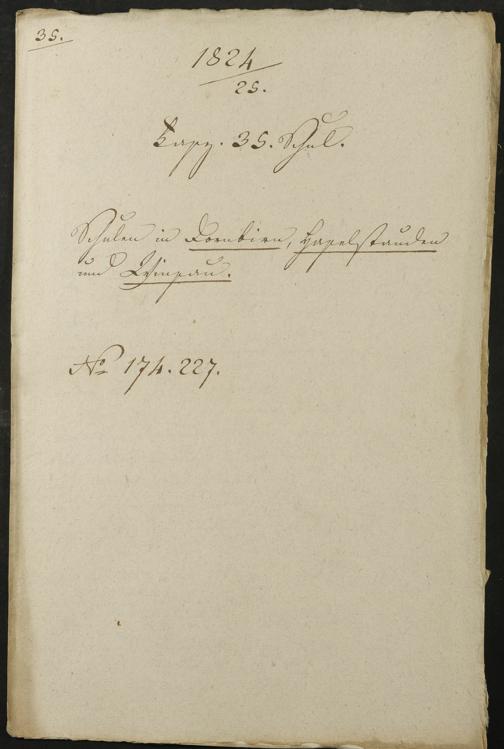 35.
1824
25.
Fasz. 35. Schul.
Schulen in Dornbirn, Haselstauden
und Winsau.
No 174. 227.